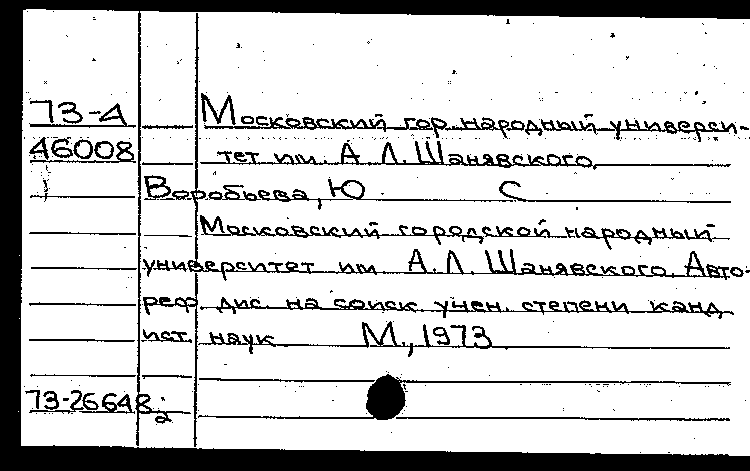 73-А Московский гор. народный универси-
46008 тет им. А. Л. Шанявского.
Воробьева, Ю С
Московский городской народный
университет им. А. Л. Шанявского. Авто-
реф. дис. на соиск. учен. степени канд.
ист. наук М., 1973.
73-26648
2